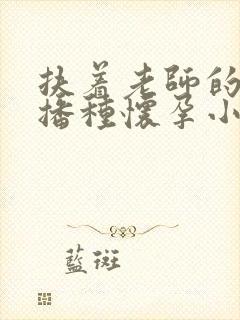 扶着老師的
播種懷孕小
藍斑